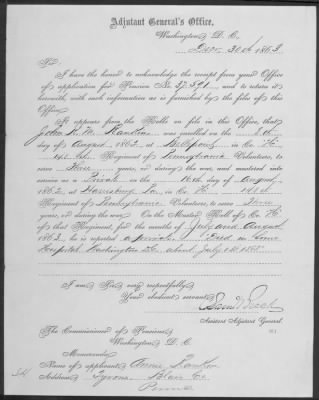 Adjutant General's Office,
Washington, D. C.
Decr. 30th 1863
Sir:
I have the honor to acknowledge the receipt from your Office
of application for Pension No. 37,391, and to return it
herewith, with such information as is furnished by the files of this
Office.
It appears from the Rolls on file in this Office, that
John R. M. Rankin was enrolled on the 8th
day of August 1862, at in Co. K.
Regiment of Pennsylvania Volunteers, to
serve Three years, or during the war, and mustered into
service as a Private on the 16th day of August,
1862, at Harrisburg Pa, in Co. K.
Regiment of Pennsylvania Volunteers, to serve Three
years, or during the war. On the Muster Roll of Co. K.
of that Regiment, for the months of July and August,
1863, he is reported a private. Died in some
Hospital Washington D.C. about July 1st 1863.
I am Sir, very respectfully,
Your obedient servant,
Assistant Adjutant General.
The Commissioner of Pensions,
Washington, D. C.
Memoranda:
Name of applicant, Annie Rankin
Address, Tyrone Blair Co.
Penna